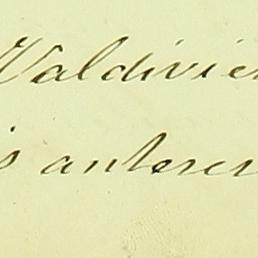 Valdivie
s anterer